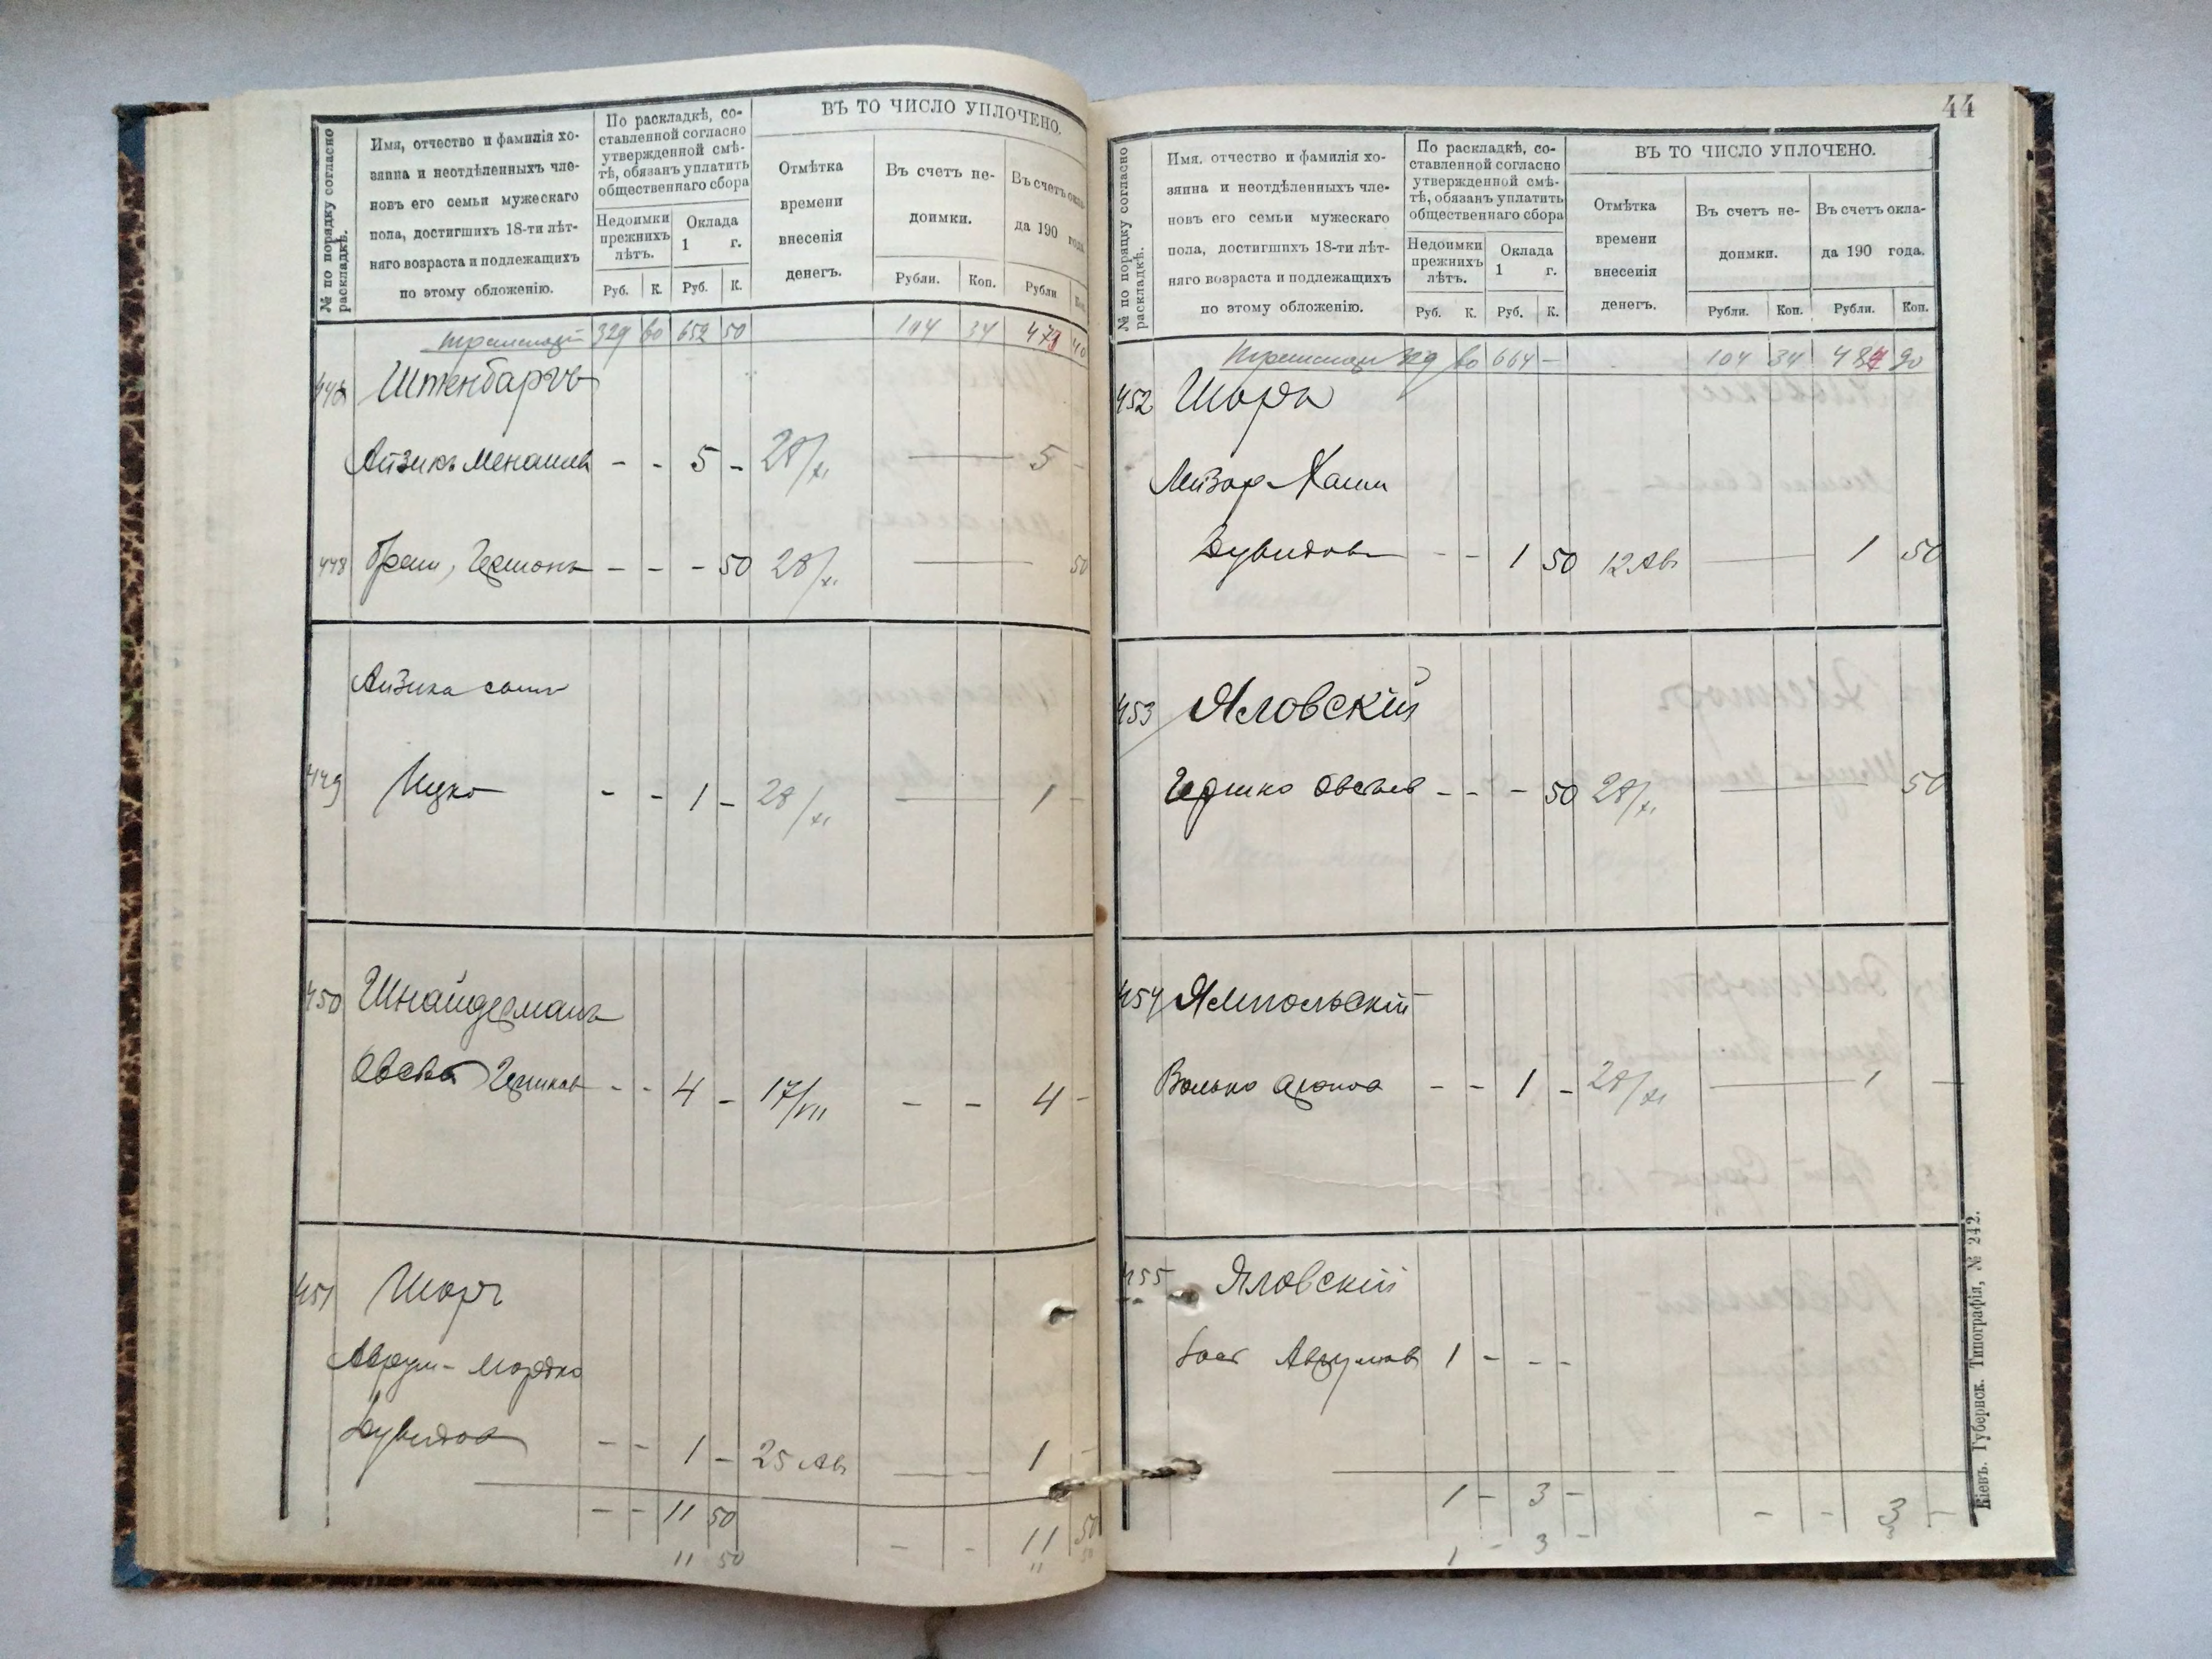 № по порядку согласно раскладкѣ.
Имя, отчество и фамилія хо-
зяина и неотдѣленныхъ чле-
новъ его семьи мужескаго
пола, достигшихъ 18-ти лѣт-
няго возраста и подлежащихъ
по этому обложенію.
По раскладкѣ, со-
ставленной согласно
утвержденной смѣ-
тѣ, обязанъ уплатить
общественнаго сбора
Недоимки
прежнихъ
лѣтъ.
Оклада
1 г.
Руб. К. Руб. К.
ВЪ ТО ЧИСЛО УПЛОЧЕНО.
Отмѣтка
времени
внесенія
денегъ.
Въ счетъ не-
доимки.
Рубли. Коп.
Въ счетъ окла-
да 190 года.
Рубли Коп.
329 60 652 50 104 34 40
Штенбаргъ
Айзикъ 5 - 28/XI 5 -
448 - - - 50 28/XI 50
Айзика
449 Ицко - - 1 - 28/XI 1 -
450 Шнайдерманъ
- - 4 - 17/VII - - 4 -
451 Шоръ
Аврум-Мордко
Дувидов - - 1 - 25 Ав 1 -
- - 11 50 - - 11 50
11 50 11 50
44
№ по порядку согласно раскладкѣ.
Имя, отчество и фамилія хо-
зяина и неотдѣленныхъ чле-
новъ его семьи мужескаго
пола, достигшихъ 18-ти лѣт-
няго возраста и подлежащихъ
по этому обложенію.
По раскладкѣ, со-
ставленной согласно
утвержденной смѣ-
тѣ, обязанъ уплатить
общественнаго сбора
Недоимки
прежнихъ
лѣтъ.
Оклада
1 г.
Руб. К. Руб. К.
ВЪ ТО ЧИСЛО УПЛОЧЕНО.
Отмѣтка
времени
внесенія
денегъ.
Въ счетъ не-
доимки.
Рубли. Коп.
Въ счетъ окла-
да 190 года.
Рубли. Коп.
329 60 664 - 104 34 90
452 Шоръ
Лейзор-Хаим
Дувидов - - 1 50 12 Ав 1 50
453 Яловскій
Гершко - - - 50 28/XI 50
454 Ямпольскій
Волько - - 1 - 28/XI 1 -
455 Яловскій
Аврумов 1 - - -
1 - 3 - - - 3 -
1 - 3 -
Кіевъ. Губернск. Типографія, № 242.